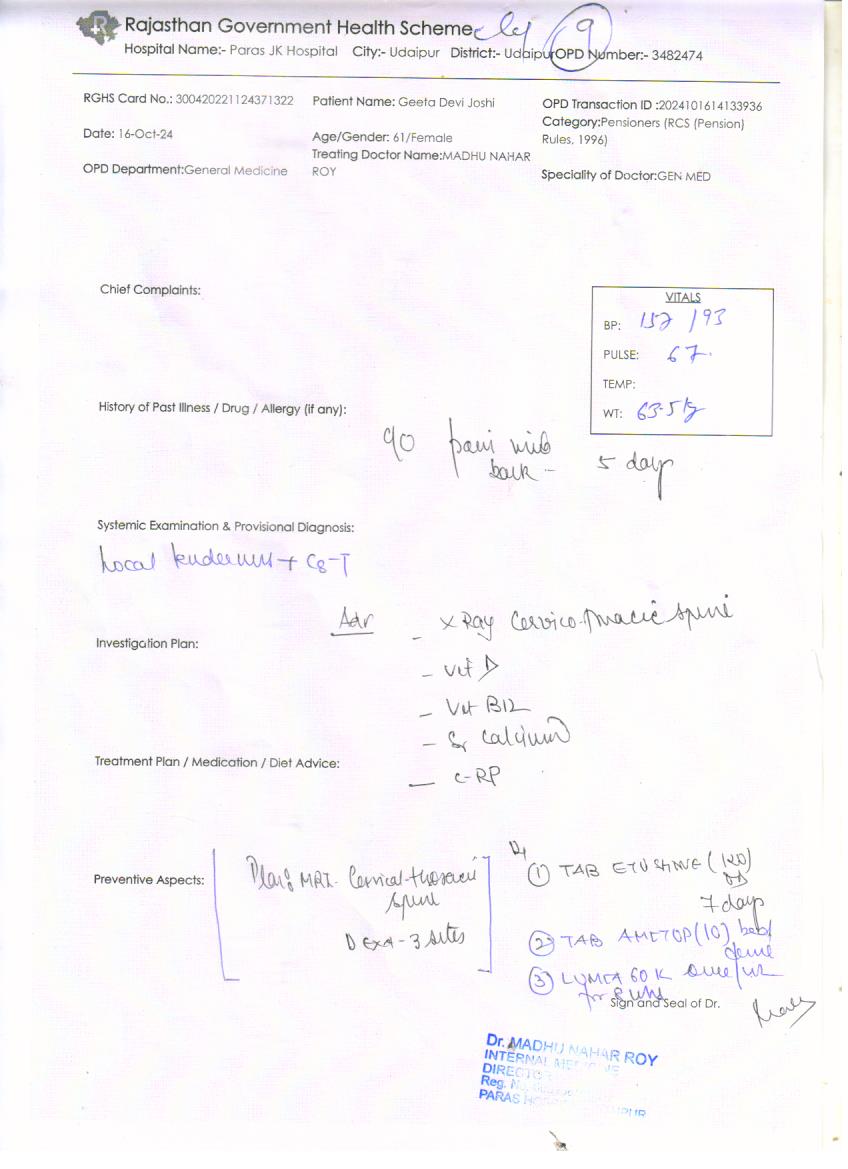 Rajasthan Government Health Scheme
9
Hospital Name:- Paras JK Hospital City:- Udaipur District:- Udaipur OPD Number:- 3482474
RGHS Card No.: 300420221124371322
Patient Name: Geeta Devi Joshi
OPD Transaction ID :2024101614133936
Category:Pensioners (RCS (Pension)
Rules, 1996)
Date: 16-Oct-24
Age/Gender: 61/Female
Treating Doctor Name:MADHU NAHAR
ROY
OPD Department:General Medicine
Speciality of Doctor:GEN MED
Chief Complaints:
VITALS
BP: 152 / 93
PULSE: 67.
TEMP:
WT: 63.5 kg
History of Past Illness / Drug / Allergy (if any):
c/o pain mid
back - 5 days
Systemic Examination & Provisional Diagnosis:
Local tenderness + C8-T
Adv - X Ray Cervico-thoracic spine
Investigation Plan:
- Vit D
- Vit B12
- Sr Calcium
Treatment Plan / Medication / Diet Advice:
- C-RP
Preventive Aspects:
Plan: MRI - Cervical-thoracic
spine
Dexa - 3 sites
① TAB ETOSHINE (120)
OD
7 days
② TAB (10)
③ LUMIA 60 K once/wk
for 8 wks
Sign and Seal of Dr.
Dr. MADHU NAHAR ROY
INTERNAL MEDICINE
DIRECTOR
Reg. No.
PARAS